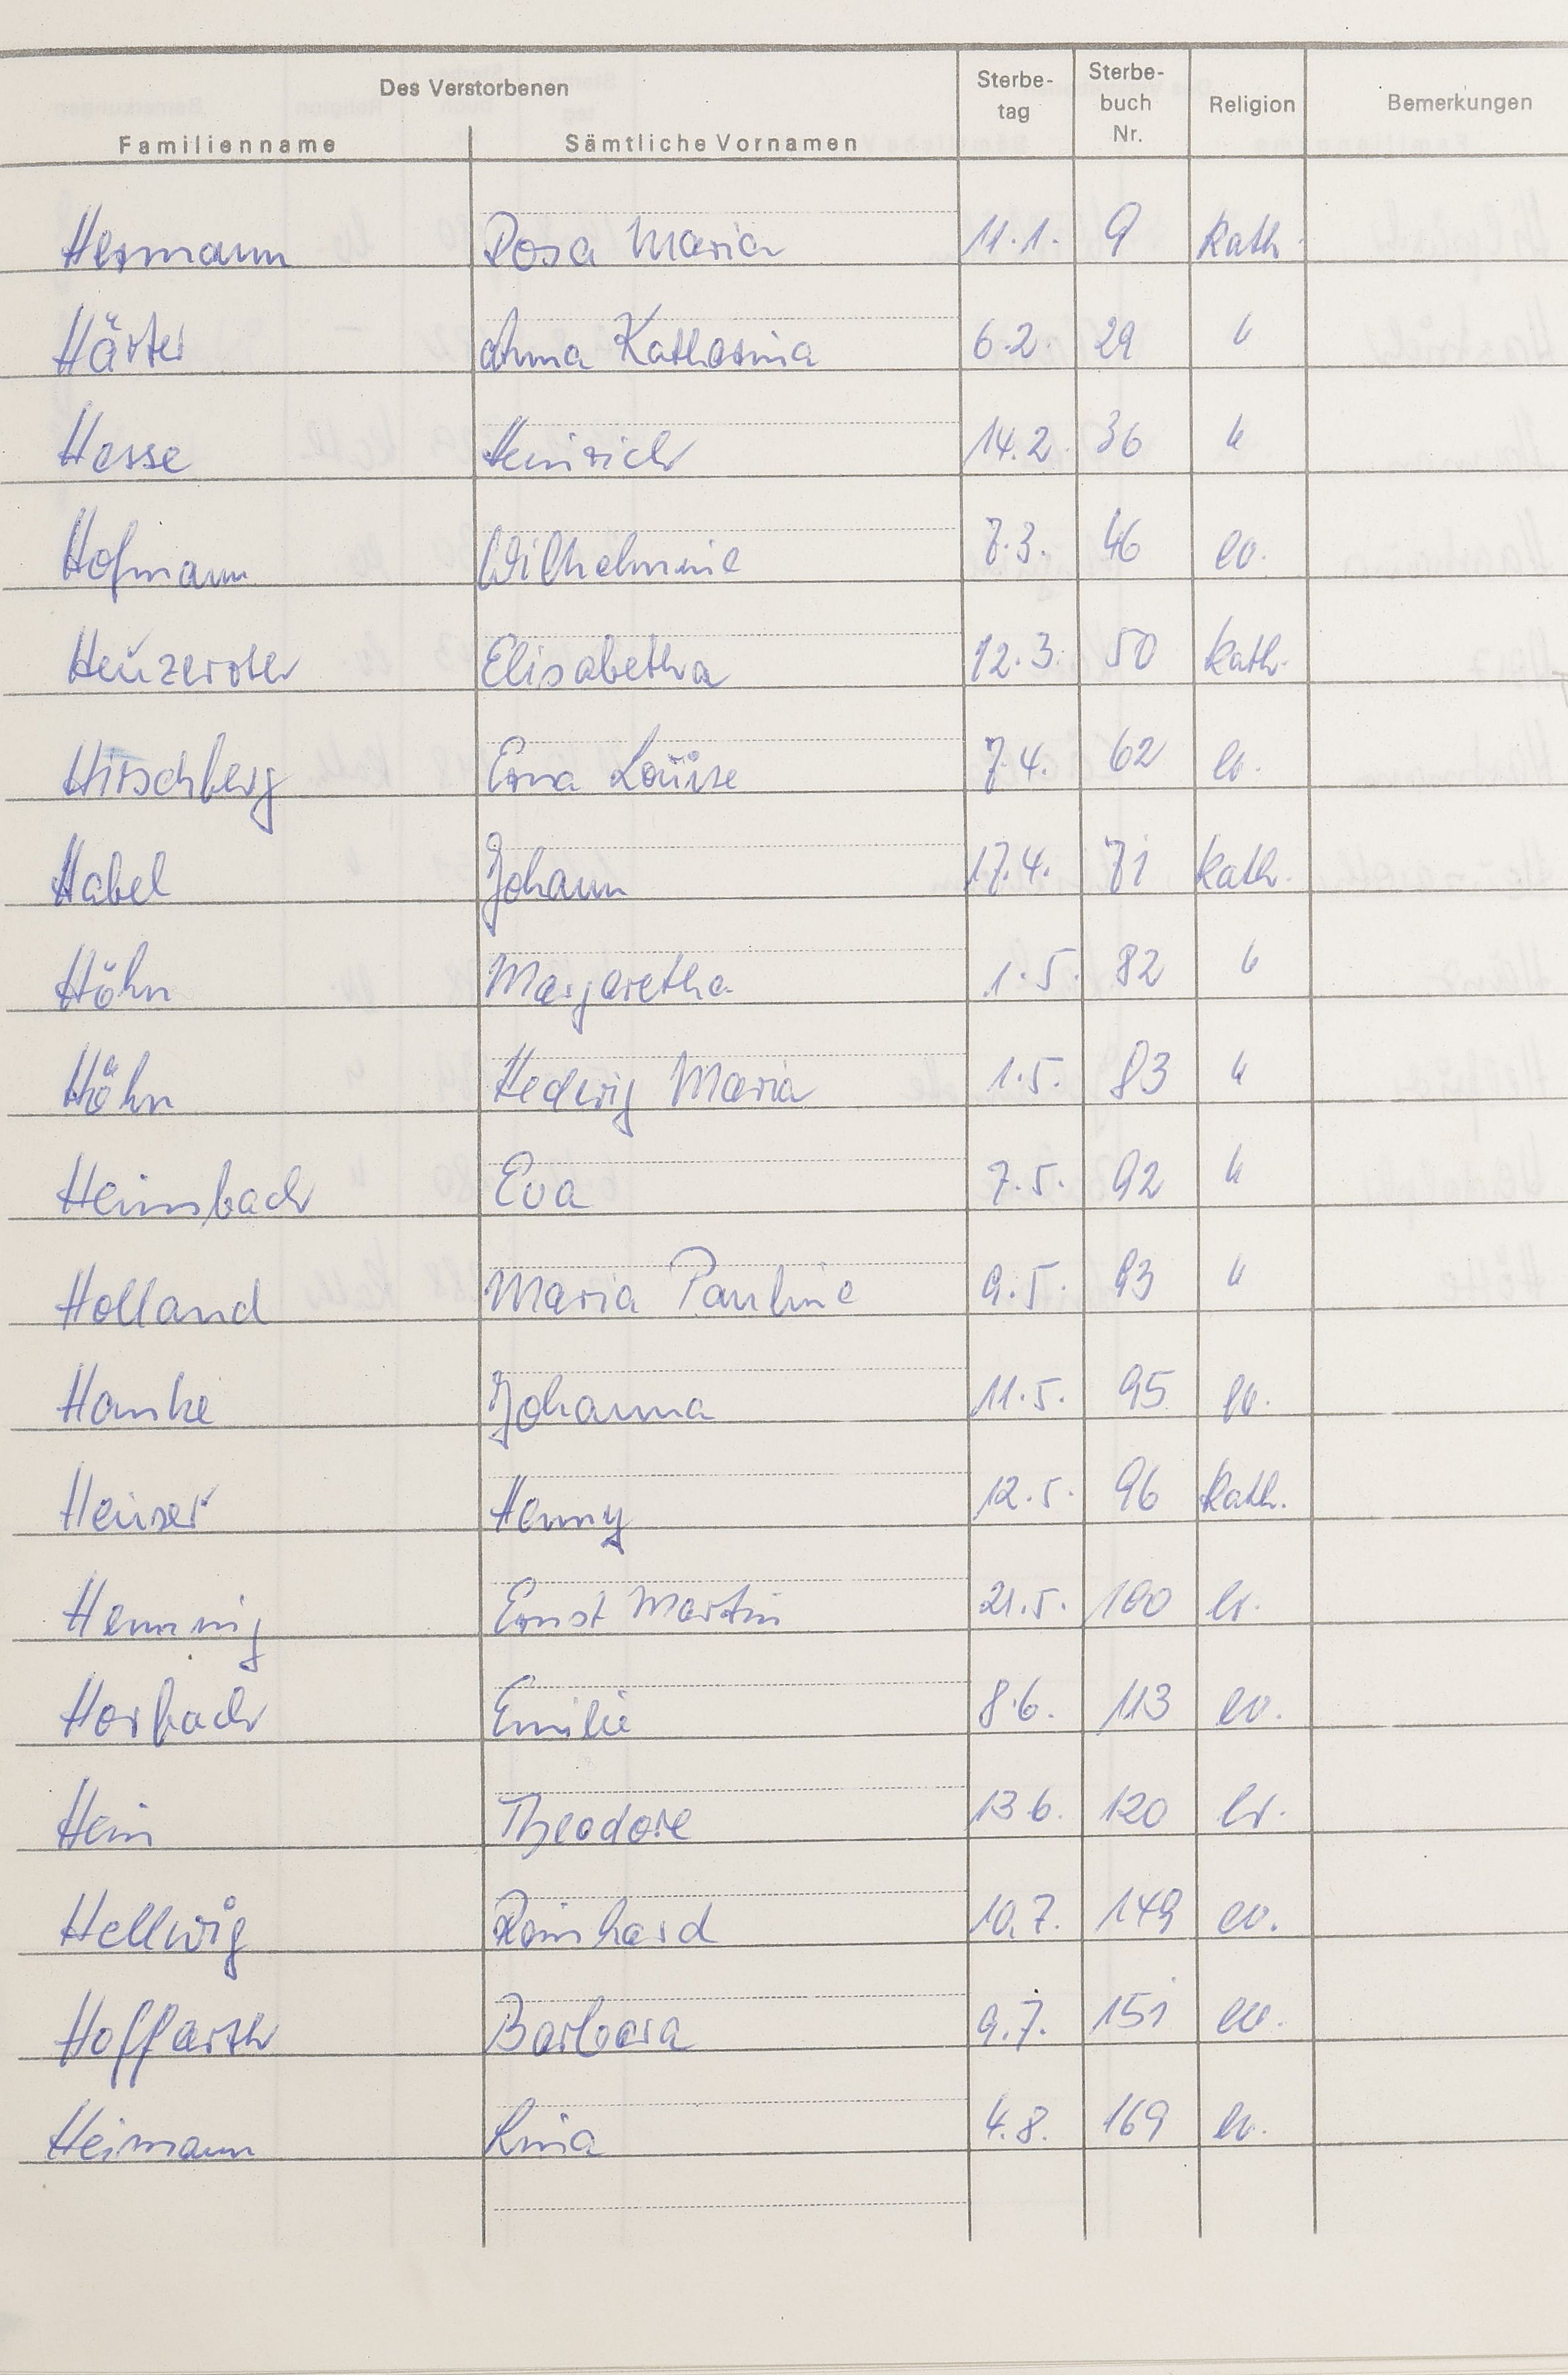 Des Verstorbenen
Familienname Sämtliche Vornamen Sterbe-tag Sterbe-buch Nr. Religion Bemerkungen
Hermann Rosa Maria 11.1. 9 kath.
Härter Anna Katharina 6.2. 29 "
Hesse Heinrich 14.2. 36 "
Hofmann Wilhelmine 7.3. 46 ev.
Heuzeroter Elisabetha 12.3. 50 kath.
Hirschberg Erna Louise 7.4. 62 ev.
Habel Johann 17.4. 71 kath.
Höhn Margaretha 1.5. 82 "
Höhn Hedwig Maria 1.5. 83 "
Heimbach Eva 7.5. 92 "
Holland Maria Pauline 9.5. 93 "
Hanke Johanna 11.5. 95 ev.
Heuser Henny 12.5. 96 kath.
Henning Ernst Martin 21.5. 100 ev.
Horbach Emilie 8.6. 113 ev.
Hein Theodore 13.6. 120 ev.
Hellwig Reinhard 10.7. 149 ev.
Hoffarth Barbara 9.7. 151 ev.
Heimann Lina 4.8. 169 ev.